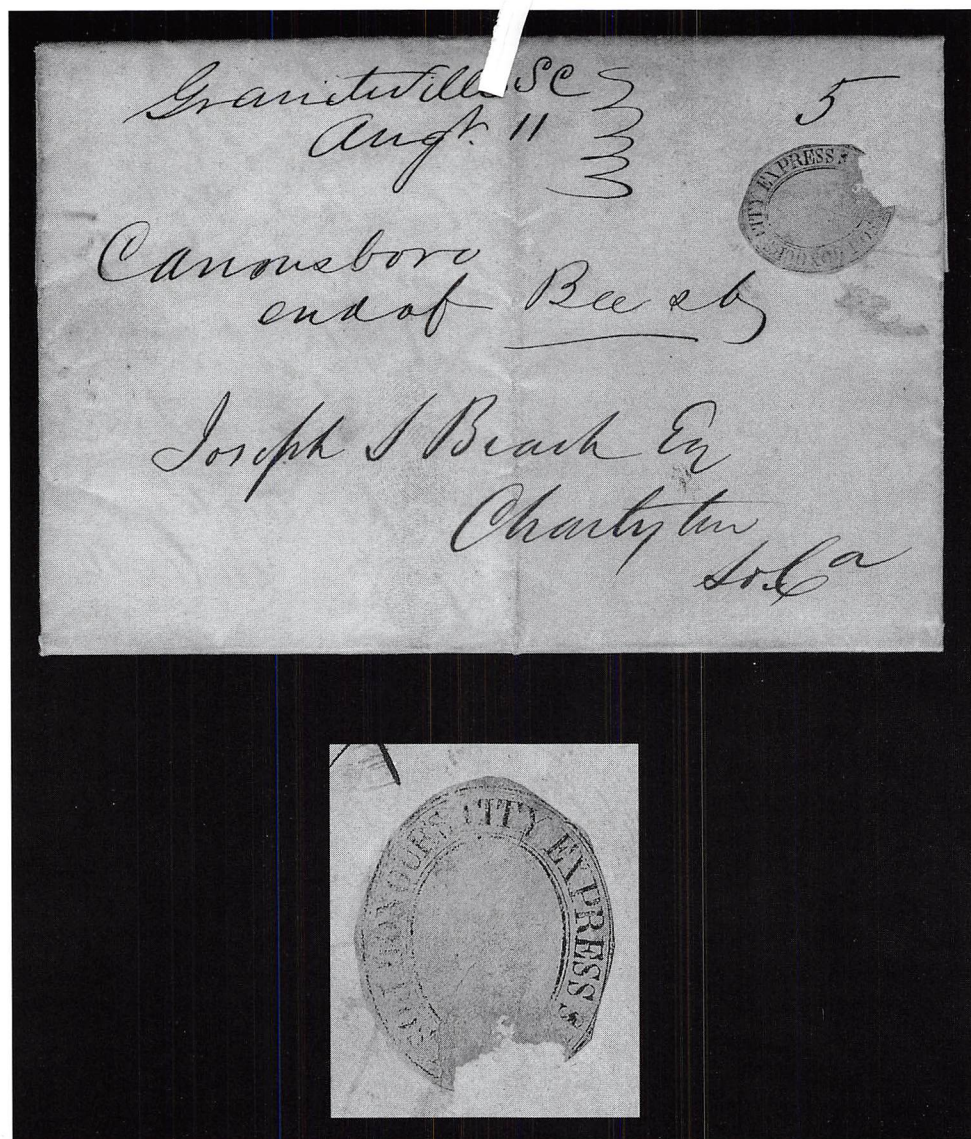 Graniteville SC
Augt. 11
5
CITY EXPRESS
Cannonsboro
end of Bee st
Joseph S Beach Eq
Charleston
So. Ca
CITY EXPRESS